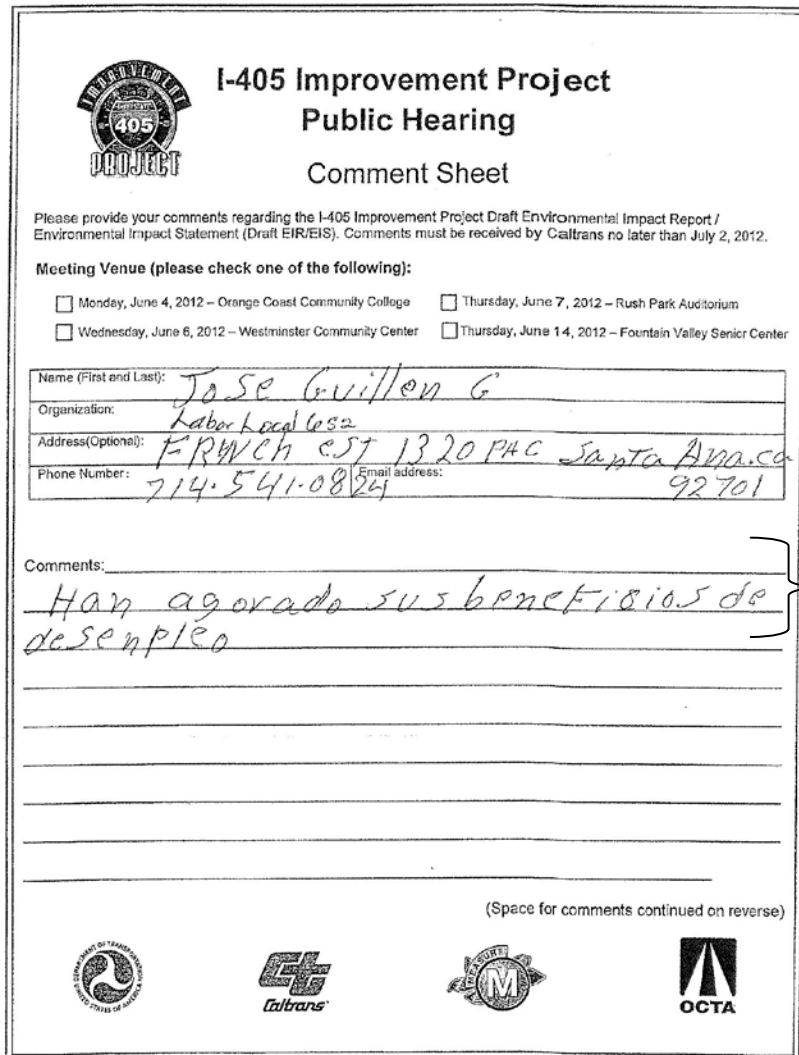 IMPROVEMENT
INTERSTATE
405
PROJECT
I-405 Improvement Project
Public Hearing
Comment Sheet
Please provide your comments regarding the I-405 Improvement Project Draft Environmental Impact Report /
Environmental Impact Statement (Draft EIR/EIS). Comments must be received by Caltrans no later than July 2, 2012.
Meeting Venue (please check one of the following):
Monday, June 4, 2012 – Orange Coast Community College
Thursday, June 7, 2012 – Rush Park Auditorium
Wednesday, June 6, 2012 – Westminster Community Center
Thursday, June 14, 2012 – Fountain Valley Senior Center
Name (First and Last): Jose Guillen G
Organization: Labor Local 652
Address(Optional): FRWCh EST 1320 PAC Santa Ana.ca
Phone Number: 714.541.0824 Email address: 92701
Comments:
Han agorado sus beneficios de
desenpleo
(Space for comments continued on reverse)
DEPARTMENT OF TRANSPORTATION
UNITED STATES OF AMERICA
Caltrans
MEASURE
M
OCTA